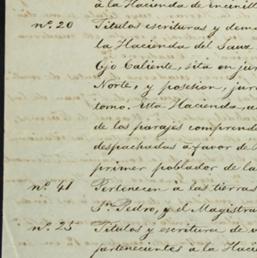 á la Hacienda de incinill
nº. 20 Titulos escrituras y dem
la Hacienda del Sauz
Ojo Caliente, sita en jur
Norte, y posesion, jur
tomo. Esta Hacienda, a
de los parajes comprend
despachadas á favor de
primer poblador de la
nº. 41 Pertenecen á las tierras
Sn. Pedro, y el Magistra
nº. 25 Titulos y escritura de v
partenecientes á la Haci